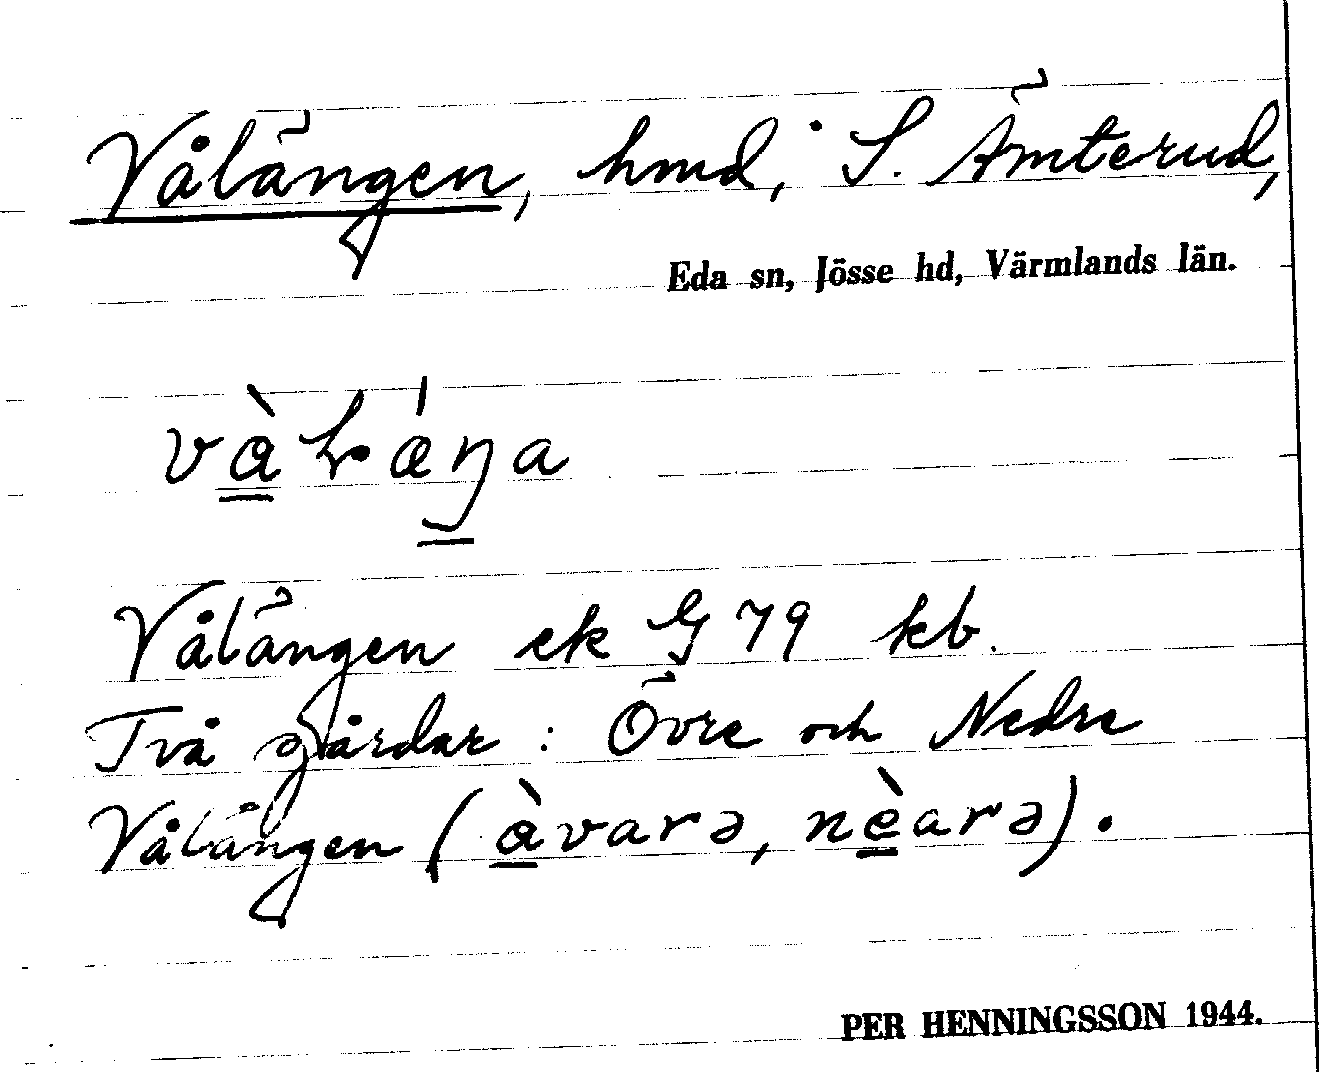 Vålängen, hmd, i S. Ämterud,
Eda sn, Jösse hd, Värmlands län.
Vålängen ek G 79 kb.
Två gårdar: Övre och Nedre
Vålängen (àvarə, nèarə).
PER HENNINGSSON 1944.